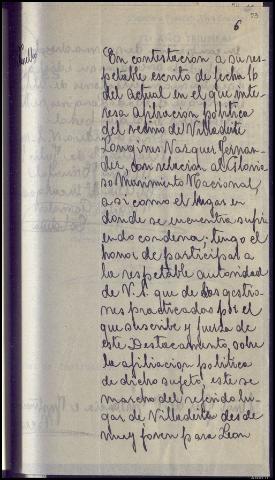 73
6
En contestación a su res-
petable escrito de fecha 16
del actual en el que inte-
resa afiliación politica
del vecino de Villadeite
Longinos Vazquez Fernan-
dez, con relacion al Glorio
so Movimiento Nacional,
asi como el lugar en
donde se encuentra sufri
endo condena; tengo el
honor de participar a
la respetable autoridad
de V.S. que de las gestio
nes practicadas por el
que suscribe y fuerza de
este Destacamento, sobre
la afiliacion politica
de dicho sujeto, este se
marcho del referido lu-
gar de Villadeite desde
muy joven para Leon